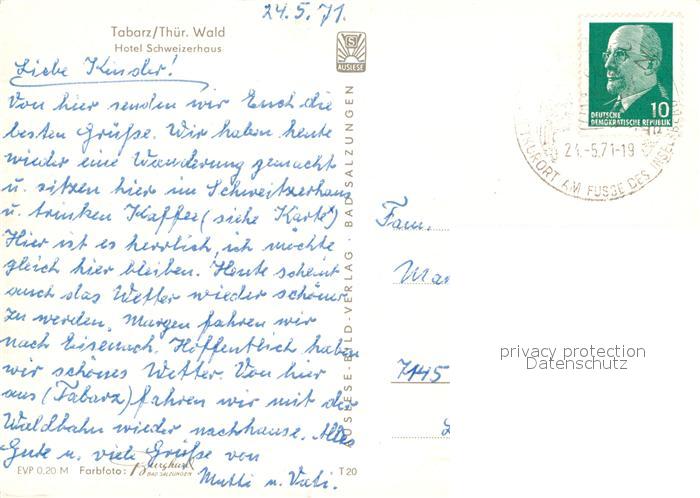 24.5.71.
Tabarz/Thür. Wald
Hotel Schweizerhaus
Liebe Kinder!
Von hier senden wir Euch die
besten Grüße. Wir haben heute
wieder eine Wanderung gemacht
u. sitzen hier im Schweitzerhaus
u. trinken Kaffee (siehe Karte)
Hier ist es herrlich, ich möchte
gleich hier bleiben. Heute scheint
auch das Wetter wieder schöner
zu werden. Morgen fahren wir
nach Eisenach. Hoffentlich haben
wir schönes Wetter. Von hier
aus (Tabarz) fahren wir mit der
Waldbahn wieder nachhause. Alles
Gute u. viele Grüße von
Mutti u. Vati.
EVP 0,20 M Farbfoto:
BAD SALZUNGEN
T 20
S
AUSLESE
AUSLESE-BILD-VERLAG · BAD SALZUNGEN
DEUTSCHE
DEMOKRATISCHE REPUBLIK
10
24.-5.71-19
KURORT AM FUSSE DES INSELSBERG
Fam.
Ma
7145
privacy protection
Datenschutz